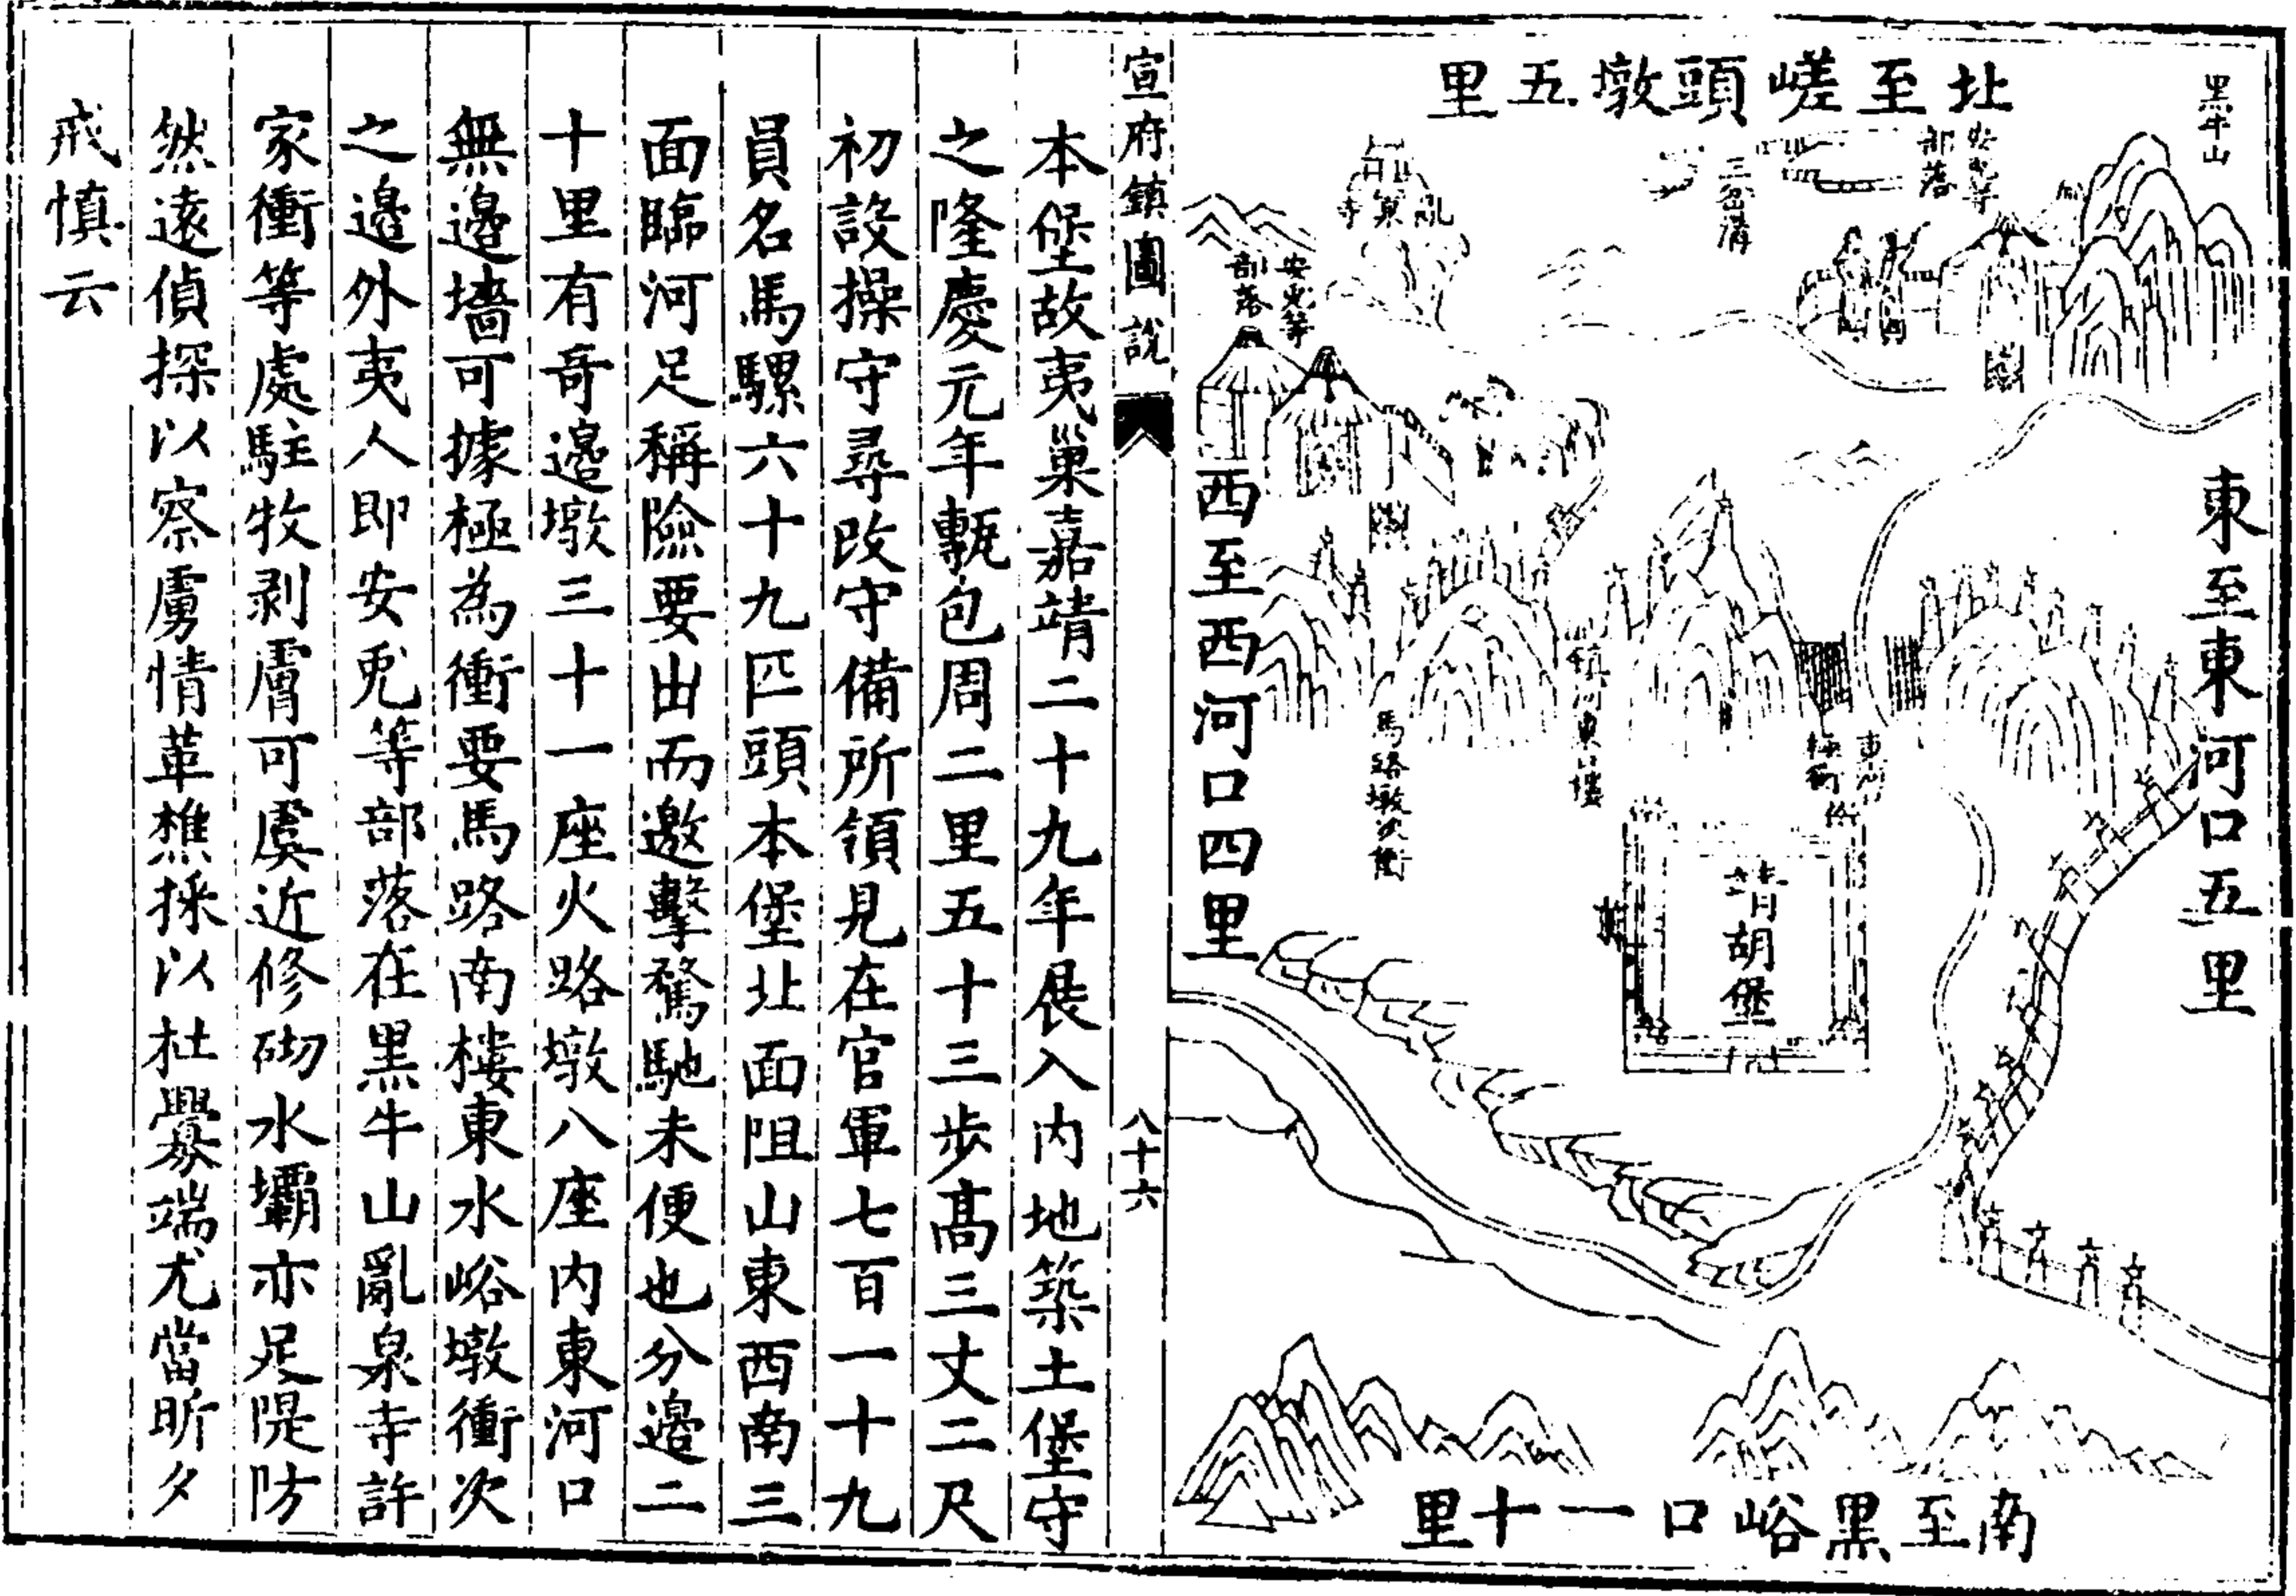 北至嵯頭墩五里
黑牛山
東至東河口五里
安兔等
部落
三岔溝
亂泉寺
安兔等
部落
西至西河口四里
鎮河東樓
馬路墩次衝
極衝
靖胡堡
南至黑峪口一十里
宣府鎮圖說
八十六
本堡故夷巢嘉靖二十九年展入内地築土堡守
之隆慶元年甎包周二里五十三步髙三丈二尺
初設操守尋改守備所領見在官軍七百一十九
員名馬騾六十九匹頭本堡北面阻山東西南三
面臨河足稱險要出而邀擊騖馳未便也分邉二
十里有奇邉墩三十一座火路墩八座内東河口
無邉墻可據極為衝要馬路南樓東水峪墩衝次
之邉外夷人即安兎等部落在黒牛山亂泉寺許
家衝等處駐牧剥膚可虞近修砌水壩亦足隄防
然遠偵探以察虜情革樵採以杜釁端尤當昕夕
戒慎云